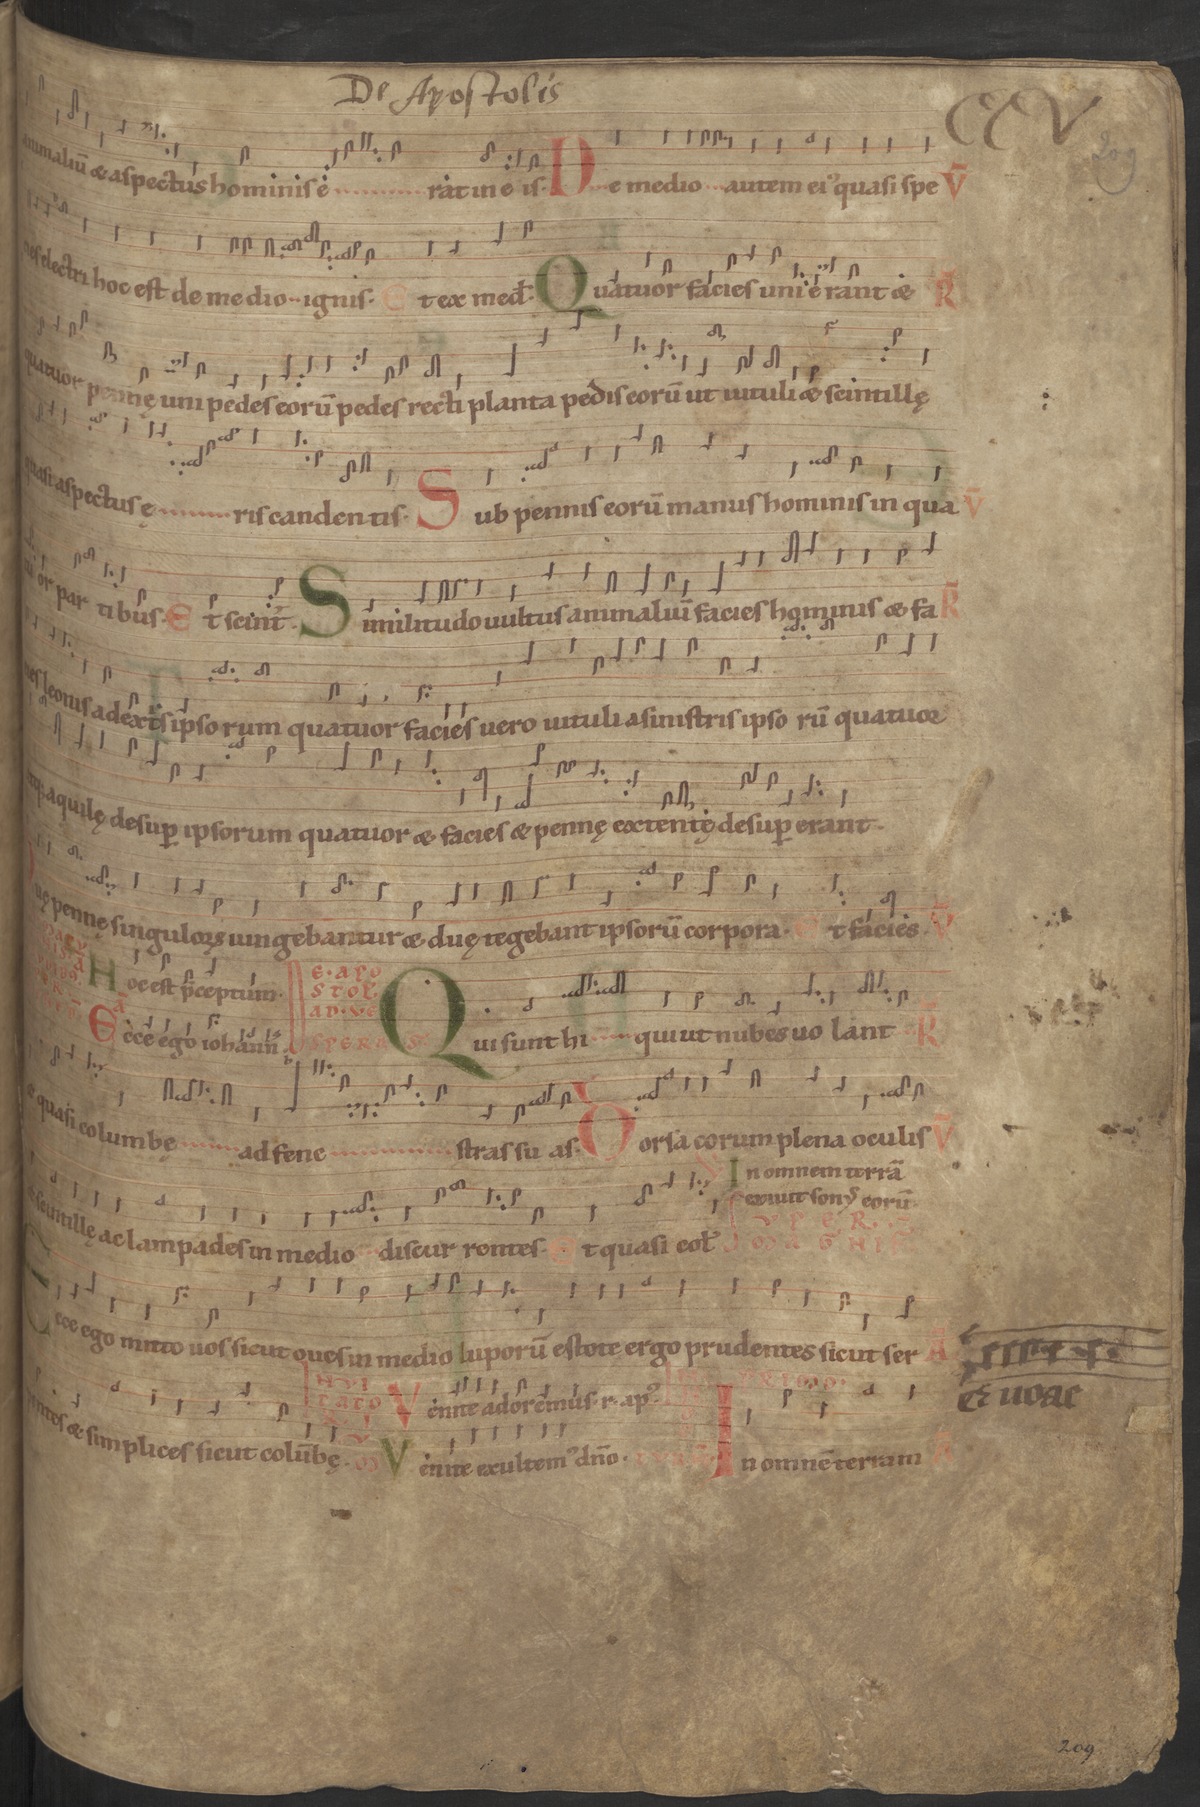 De Apostolis
CCV
209
animaliū & aspectus hominis e rat in e is. De medio autem ei⁹ quasi spe V̄
cies electri hoc est de medio ignis. Et ex med̄. Quatuor facies uni erant & R̄
quatuor pennę uni pedes eorū pedes recti planta pedis eorū ut uituli & scintillę
quasi aspectus ę ris candentis. Sub pennis eorū manus hominis in qua V̄
tu or par tibus. Et scint. Similitudo uultus animaliū facies hominis & fa R̄
cies leonis a dextris ipsorum quatuor facies uero uituli a sinistris ipso rū quatuor
aquilę desup ipsorum quatuor & facies & pennę extentę desup erant.
Duę pennę singuloꝝ iungebantur & duę tegebant ipsorū corpora. Et facies. V̄
Hoc est p̄ceptum. E. APO
STOL
AD. VE
SPERAS
Ecce ego iohann̄ Qui sunt hi qui ut nubes uo lant R̄
e quasi columbę ad fene stras su as. Dorsa eorum plena oculis V̄
In omnem terrā
exiuit son⁹ eorū.
scintillę ac lampades in medio discur rentes. Et quasi col̄
Ecce ego mitto uos sicut oues in medio luporū estote ergo prudentes sicut ser
Euouae
Venite adoremus. r. ap⁹.
pentes & simplices sicut colūbę. Venite exultem⁹ dn̄o. In omnē terram
209